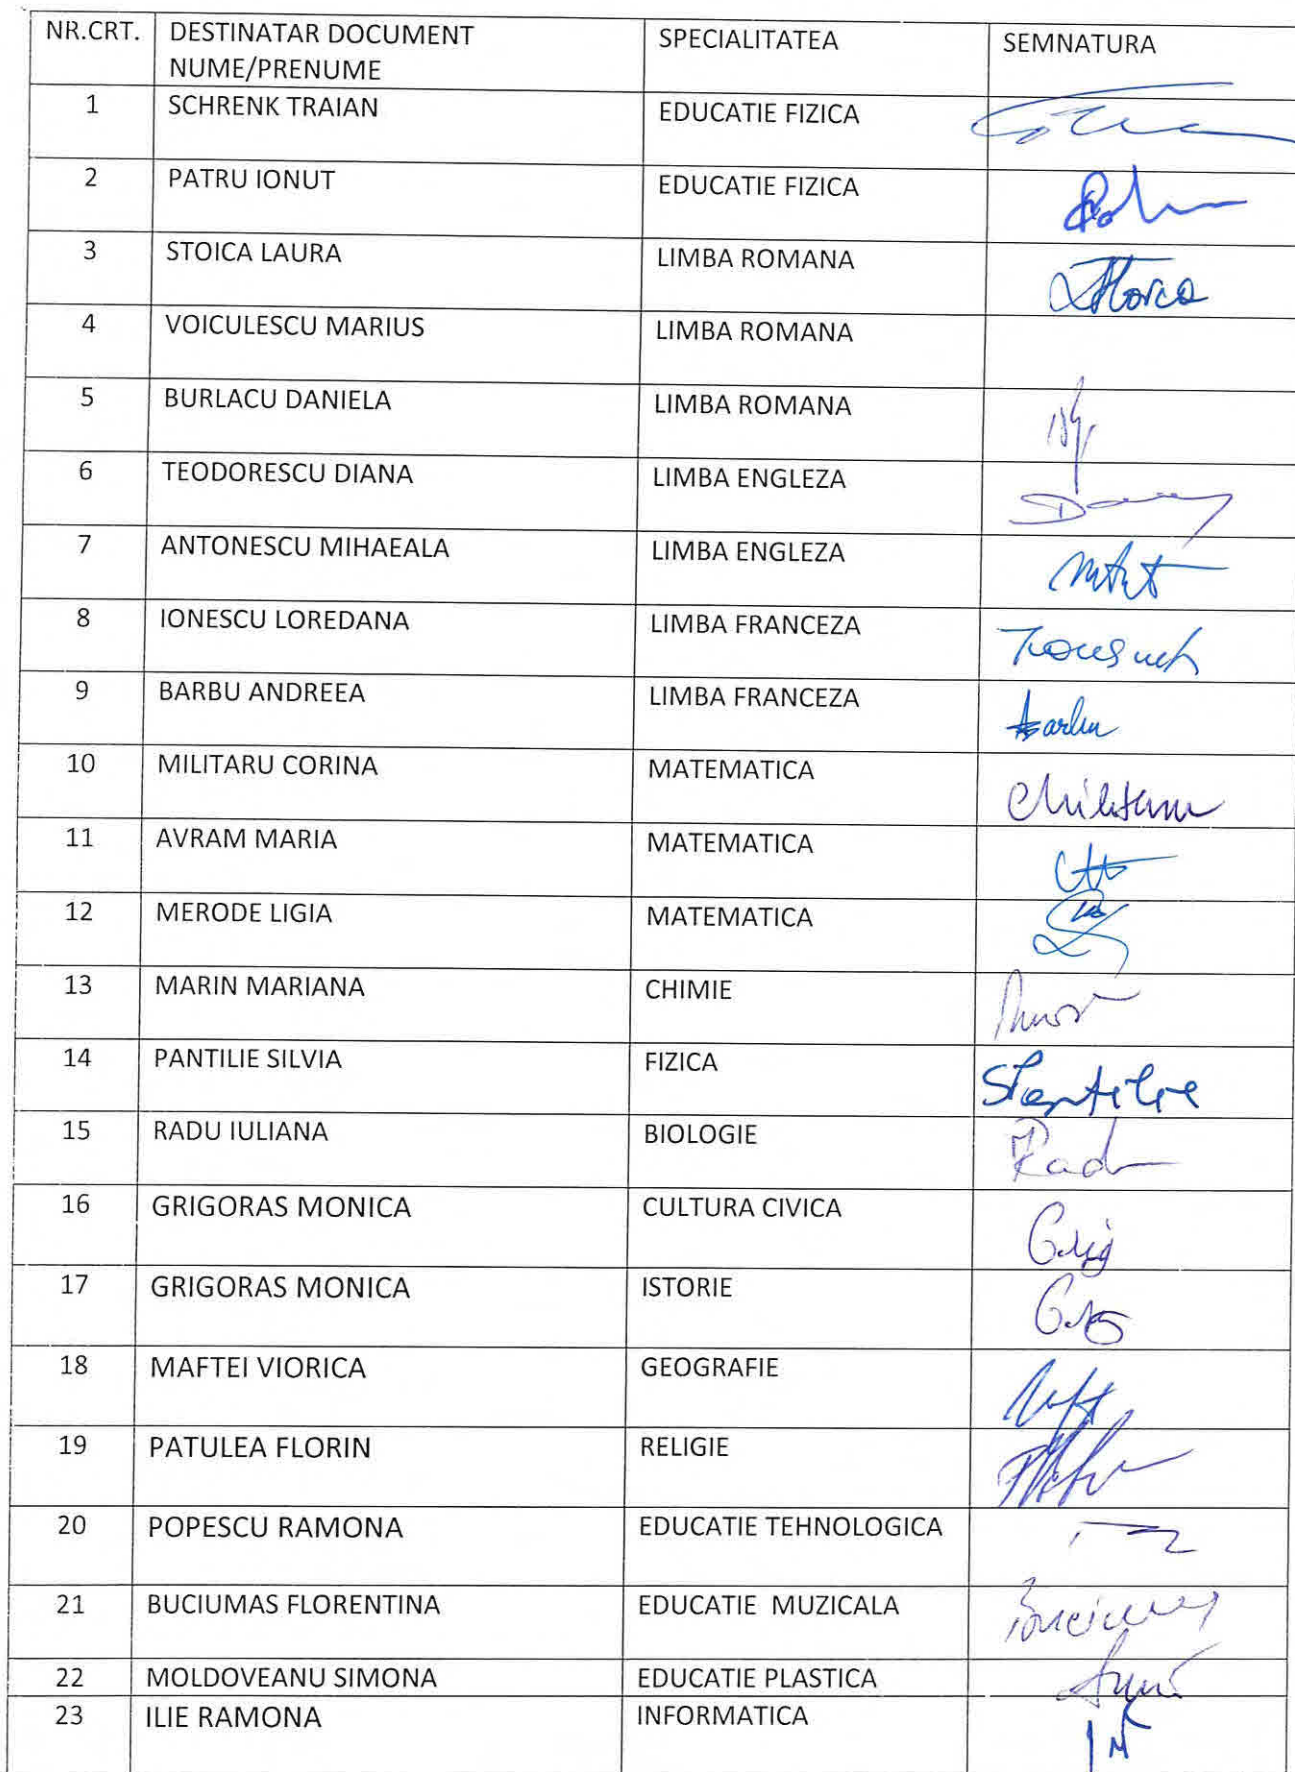 NR.CRT. DESTINATAR DOCUMENT SPECIALITATEA SEMNATURA
NUME/PRENUME
1 SCHRENK TRAIAN EDUCATIE FIZICA
2 PATRU IONUT EDUCATIE FIZICA
3 STOICA LAURA LIMBA ROMANA
4 VOICULESCU MARIUS LIMBA ROMANA
5 BURLACU DANIELA LIMBA ROMANA
6 TEODORESCU DIANA LIMBA ENGLEZA
7 ANTONESCU MIHAEALA LIMBA ENGLEZA
8 IONESCU LOREDANA LIMBA FRANCEZA
9 BARBU ANDREEA LIMBA FRANCEZA
10 MILITARU CORINA MATEMATICA
11 AVRAM MARIA MATEMATICA
12 MERODE LIGIA MATEMATICA
13 MARIN MARIANA CHIMIE
14 PANTILIE SILVIA FIZICA
15 RADU IULIANA BIOLOGIE
16 GRIGORAS MONICA CULTURA CIVICA
17 GRIGORAS MONICA ISTORIE
18 MAFTEI VIORICA GEOGRAFIE
19 PATULEA FLORIN RELIGIE
20 POPESCU RAMONA EDUCATIE TEHNOLOGICA
21 BUCIUMAS FLORENTINA EDUCATIE MUZICALA
22 MOLDOVEANU SIMONA EDUCATIE PLASTICA
23 ILIE RAMONA INFORMATICA